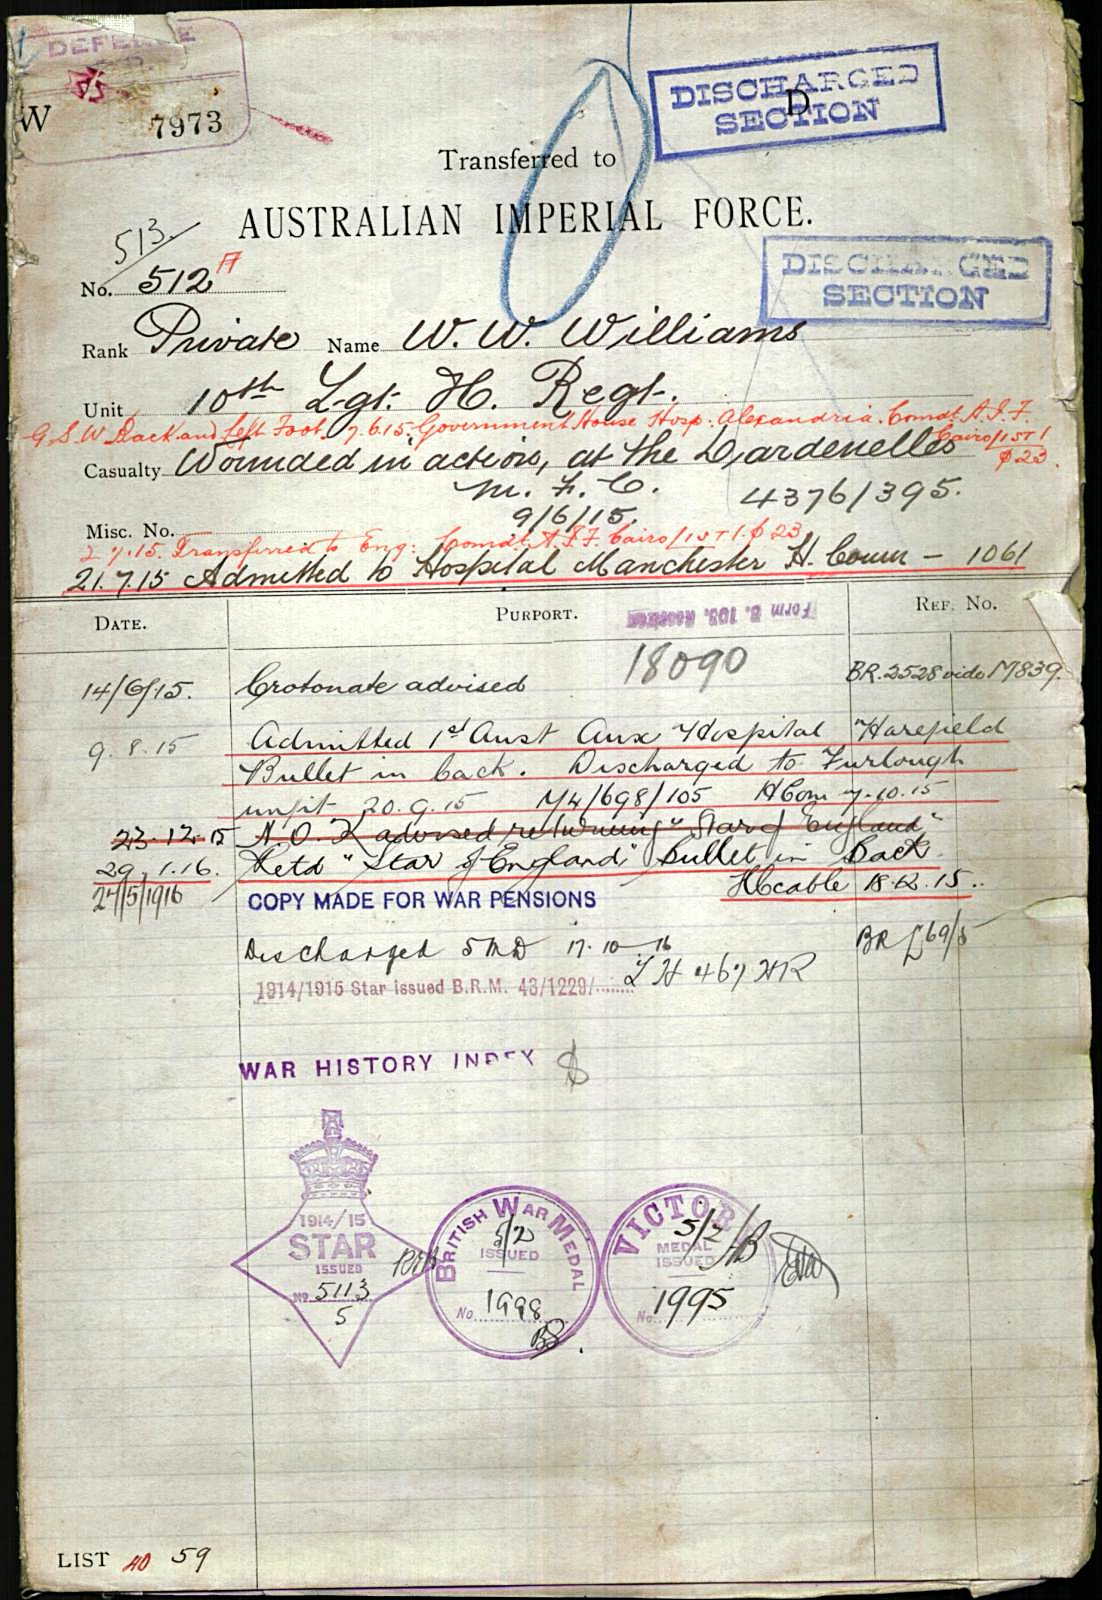 DEFENCE
W
7973
DISCHARGED
D
SECTION
Transferred to
AUSTRALIAN IMPERIAL FORCE.
DISCHARGED
SECTION
513.
No. 512 A
Rank Private Name W. W. Williams
Unit 10th Lgt. H. Regt.
G.S.W Back and Left Foot 7.6.15 Government House Hosp: Alexandria. Comdt A.I.F.
Cairo/1ST1
$23.
Casualty Wounded in action, at the Dardenelles
M. F. C. 4376/395.
Misc. No. 9/6/15.
2.7.15. Transferred to Eng: Comdt A.I.F. Cairo/1ST1.$23
21.7.15 Admitted to Hospital Manchester H. Comm - 1061
DATE. PURPORT. REF. NO.
Form B. 103. Received
18090
14/6/15. Crotonate advised BR.2528 vide M839.
9.8.15 Admitted 1st Aust Aux Hospital "Harefield
Bullet in back. Discharged to Furlough
unfit 20.9.15 M4/698/105 HCom 7.10.15
23.12.15 advised returning "Star of England"
29.1.16. Retd "Star of England," Bullet in Back
HCcable 18.12.15..
24/5/1916 COPY MADE FOR WAR PENSIONS
Discharged 5 MD 17.10.16 BR L69/5
1914/1915 Star issued B.R.M. 43/1229/ LH 467 HR
WAR HISTORY INDEX
1914/15
STAR
ISSUED
No 5113
5
BRITISH WAR MEDAL
5/2
ISSUED
No. 1998
VICTORY
5/2
MEDAL
ISSUED
No. 1995
LIST 40 59